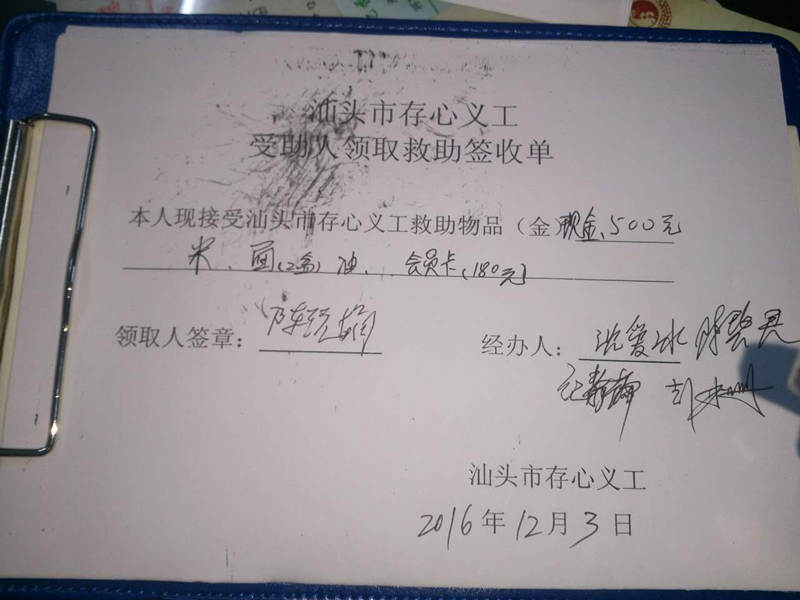 汕头市存心义工
受助人领取救助签收单
本人现接受汕头市存心义工救助物品（金）现金、500元
米、面(2盒)油、会员卡(180元)
领取人签章：
经办人：
汕头市存心义工
2016年12月3日